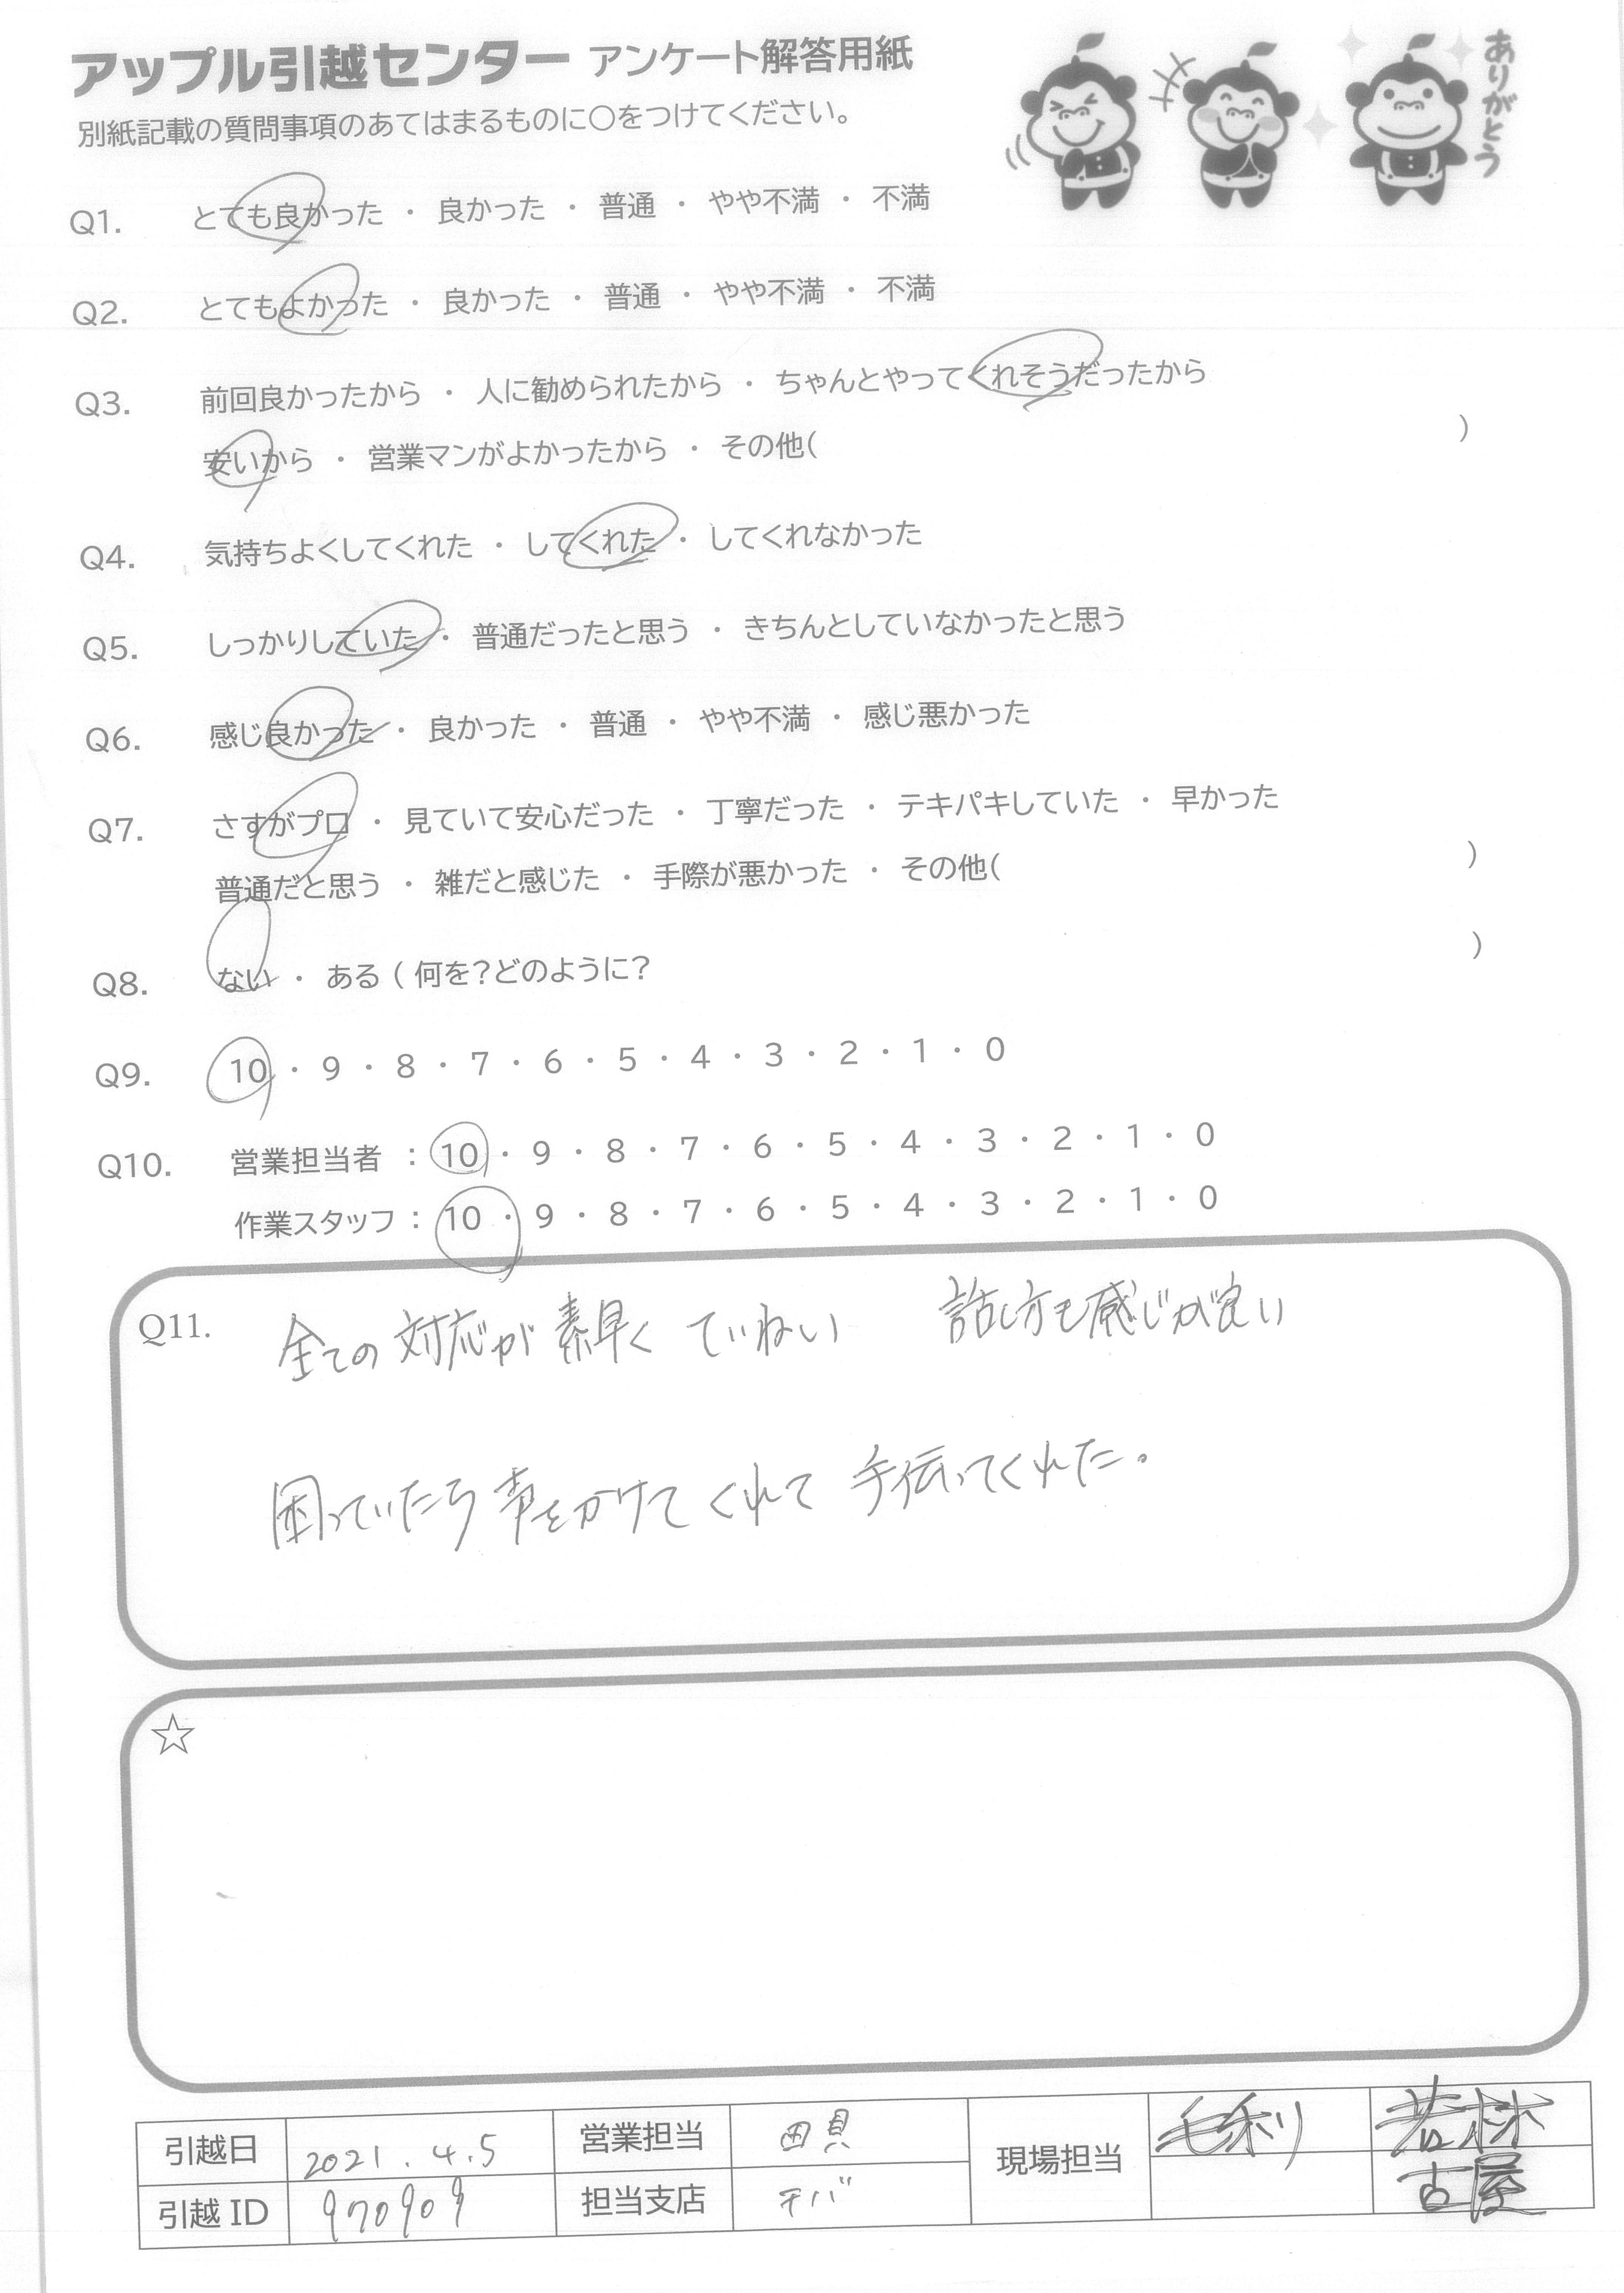 アップル引越センター アンケート解答用紙
ありがとう
別紙記載の質問事項のあてはまるものに〇をつけてください。
Q1. とても良かった ・ 良かった ・ 普通 ・ やや不満 ・ 不満
Q2. とてもよかった ・ 良かった ・ 普通 ・ やや不満 ・ 不満
Q3. 前回良かったから ・ 人に勧められたから ・ ちゃんとやってくれそうだったから
安いから ・ 営業マンがよかったから ・ その他( )
Q4. 気持ちよくしてくれた ・ してくれた ・ してくれなかった
Q5. しっかりしていた ・ 普通だったと思う ・ きちんとしていなかったと思う
Q6. 感じ良かった ・ 良かった ・ 普通 ・ やや不満 ・ 感じ悪かった
Q7. さすがプロ ・ 見ていて安心だった ・ 丁寧だった ・ テキパキしていた ・ 早かった
普通だと思う ・ 雑だと感じた ・ 手際が悪かった ・ その他( )
Q8. ない ・ ある ( 何を？どのように？ )
Q9. 10 ・ 9 ・ 8 ・ 7 ・ 6 ・ 5 ・ 4 ・ 3 ・ 2 ・ 1 ・ 0
Q10. 営業担当者 : 10 ・ 9 ・ 8 ・ 7 ・ 6 ・ 5 ・ 4 ・ 3 ・ 2 ・ 1 ・ 0
作業スタッフ : 10 ・ 9 ・ 8 ・ 7 ・ 6 ・ 5 ・ 4 ・ 3 ・ 2 ・ 1 ・ 0
Q11. 全ての対応が素早く ていねい 話し方も感じが良い
困っていたら声をかけてくれて 手伝ってくれた。
☆
引越日 2021.4.5 営業担当 現場担当 毛利 若林
引越 ID 970909 担当支店 チバ 古屋